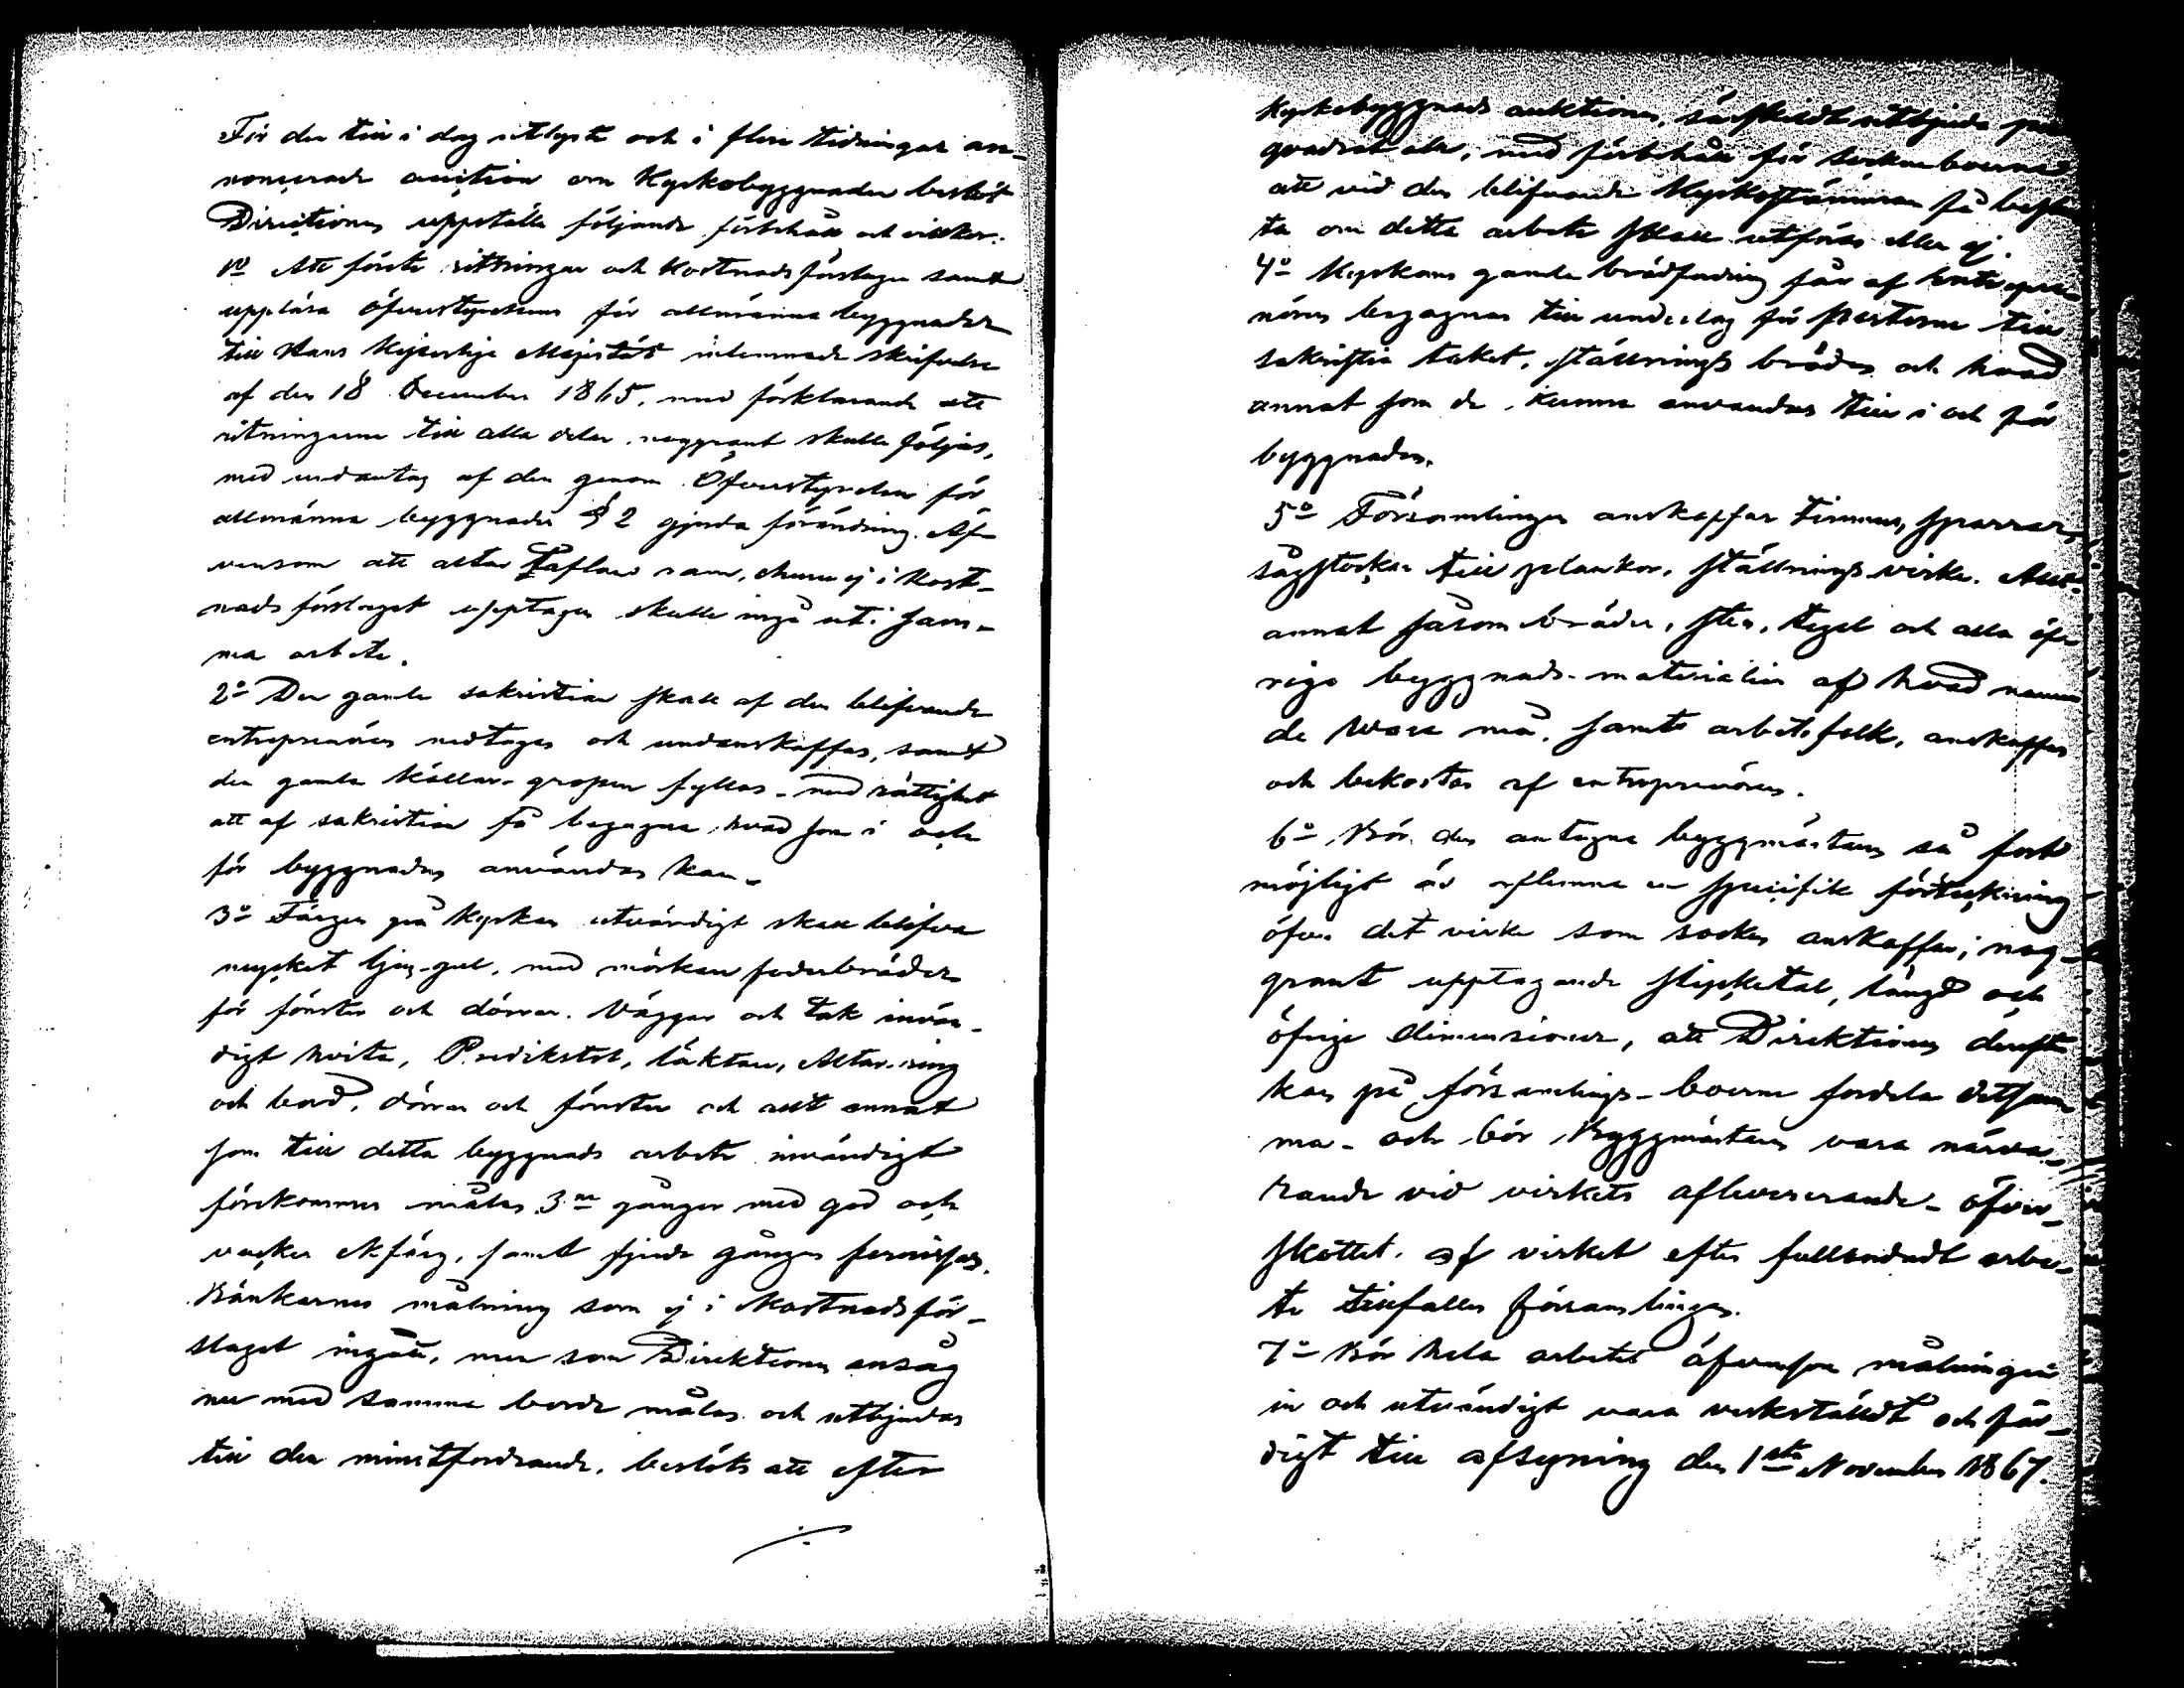 För den till i dag utlyste och i flere tidningar an-
noncerade auction om Kyrkobyggnaden beslöt
Directionen uppställa följande förbehåll och villkor.
1º Att förete ritningar och kostnadsförslagen samt
uppläsa öfverstyrelsens för allmänna byggnader
till Hans Kejserliga Majestät inlemnade skrifvelse
af den 18 December 1865, med förklarande att
ritningarne till alla delar noggrant skulle följas,
med undantag af den genom Öfverstyrelsen för
allmänna byggnader § 2 gjorda förändring. Äf-
vensom att altar taflans ram, ehuru ej i kost-
nads förslaget upptagen skulle ingå uti sam-
ma arbete.
2º Den gamla sakristian skall af den blifvande
entreprenören nedtagas och undanskaffas, samt
den gamla källar-gropen fyllas - med rättighet
att af sakristian få begagna hvad som i och
för byggnaden användas kan.
3º Färgen på Kyrkan utvändigt skall blifva
mycket ljus-gul, med mörkare foderbräder
för fönster och dörrar. Väggar och tak invän-
digt hvita, Predikstol, läktare, Altar-ring
och bord, dörrar och fönster och allt annat
som till detta byggnads arbete invändigt
förekommer målas 3ne gånger med god och
vacker oljefärg, samt fjerde gången fernissas.
Bänkarnes målning som ej i Kostnadsför-
slaget ingått, men som Direktionen ansåg
nu med samma borde målas och utbjudas
till den minstfordrande, beslöts att efter
Kyrkobyggnads auktionen, särskildt utbjuda per
qvadrat aln, med förbehåll för sockenboerne
att vid den blifvande Kyrkostämman få beslu
ta om detta arbete skall utföras eller ej.
4º Kyrkans gamla brädfodring får af entrepre-
nören begagnas till underlag för pertorne till
sakristie taket, ställnings bräder och hvad
annat som de kunna användas till i och för
byggnaden.
5º Församlingen anskaffar timmer, sparrar,
sågstockar till plankor, ställnings virke. Allt
annat såsom bräder, sten, tegel och alla öf-
riga byggnads-materialier af hvad namn
de vara må, samt arbetsfolk, anskaffas
och bekostas af entreprenören.
6º Bör den antagna byggmästaren så fort
möjligt är aflemna en specifik förteckning
öfver det virke som socknen anskaffar, nog-
grant upptagande stycketal, längd och
öfrige dimensioner, att Direktionen derefter
kan på församlings-boerne fördela detsam
ma - och bör Byggmästaren vara närva-
rande vid virkets afleverande - öfver-
skottet af virket efter fulländadt arbe-
te tillfaller församlingen.
7º Bör hela arbetet äfvensom målningen
in och utvändigt vara verkställdt och fär-
digt till afsyning den 1sta November 1867.